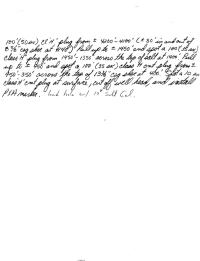 100' (50 sx) cl "H" plug from ± 4200'-4100' (± 50' in and out of
8 5/8" csg shoe at 4148') Pull up to ± 1450' and spot a 100' (35 sx)
class H plug from 1450'-1350' across the top of salt at 1400'. Pull
up to ± 450' and spot a 100' (35 sx) class H cmt plug from ±
450'-350' across the top of 13 3/8" csg shoe at 400'. Spot a 10 sx
class H cmt plug at surface, cut off well head, and install
P&A marker. hole w/ 10# Salt Gel.